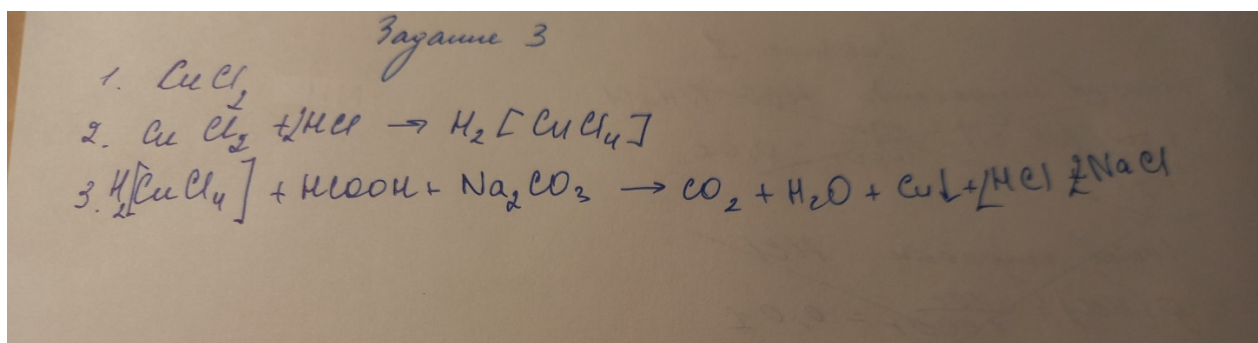 Задание 3
1. CuCl2
2. CuCl2 + 2HCl → H2[CuCl4]
3. H2[CuCl4] + HCOOH + Na2CO3 → CO2 + H2O + Cu↓ + [HCl 2NaCl